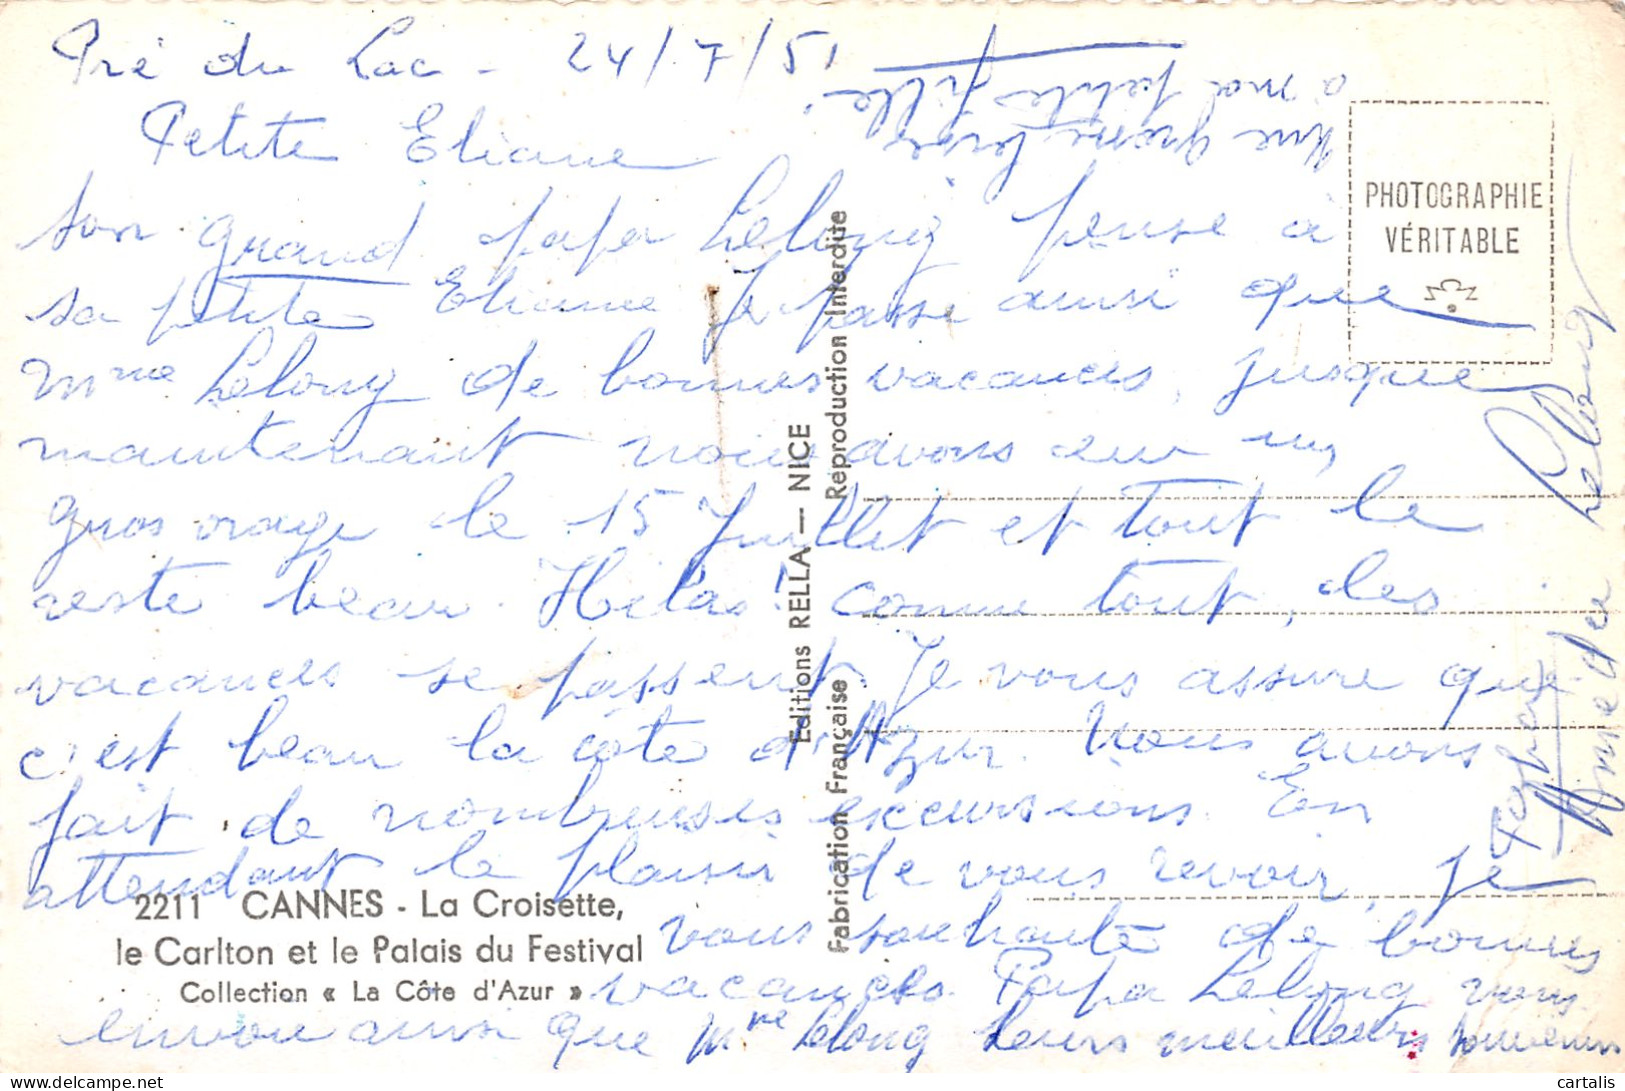 Pré du Lac - 24/7/51
Petite Eliane
Son grand papa Lelong pense à
sa petite Eliane Je passe ainsi que
Mme Lelong de bonnes vacances, jusque
maintenant nous avons eu un
gros orage le 15 Juillet et tout le
reste beau. Hélas! comme tout, les
vacances se passent. Je vous assure que
c'est beau la côte d'Azur. Nous avons
fait de nombreuses excursions. En
attendant le plaisir de vous revoir, je
vous souhaite de bonnes
vacances. Papa Lelong vous
envoie ainsi que Mme Lelong leurs meilleurs souvenirs
Une grosse bise
à ma petite fille
Lelong
PHOTOGRAPHIE
VÉRITABLE
Editions RELLA — NICE
Fabrication Française Reproduction Interdite
2211 CANNES - La Croisette,
le Carlton et le Palais du Festival
Collection « La Côte d'Azur »
delcampe.net
cartalis